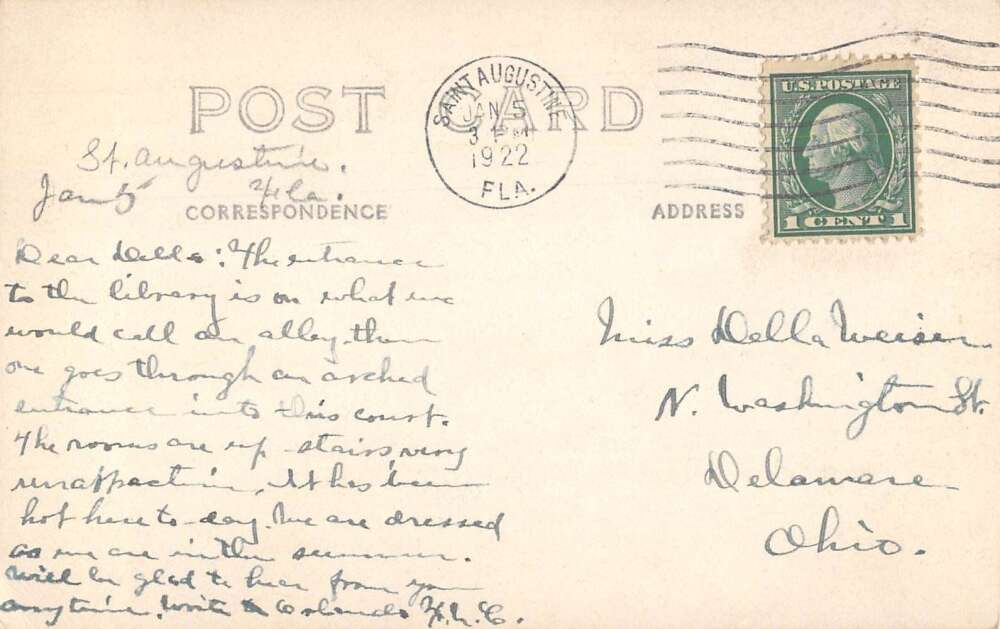 POST CARD
SAINT AUGUSTINE
JAN 5
3 PM
1922
FLA.
U.S. POSTAGE
1 CENT 1
St. Augustine.
Jan 5 Fla.
CORRESPONDENCE
ADDRESS
Dear Della: The entrance
to the library is on what we
would call an alley then
one goes through an arched
entrance into this court.
The rooms are up-stairs, very
unattractive. It has been
hot here to-day. We are dressed
as we are in the summer.
Will be glad to hear from you
anytime. Write to Orlando
Miss Della Weiser
N. Washington St.
Delaware
Ohio.